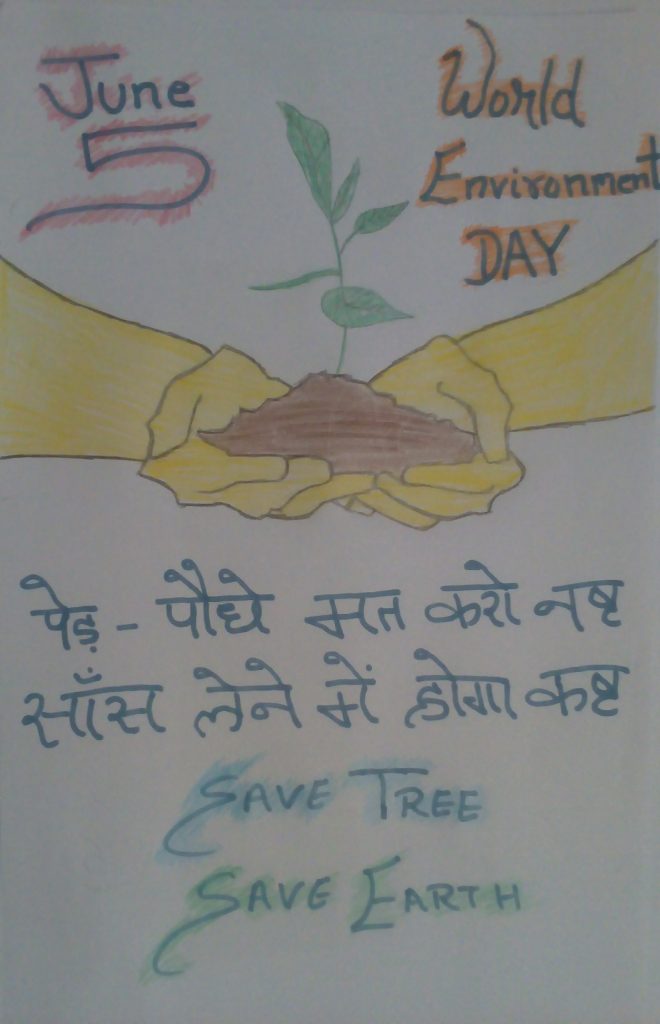 June
5
World
Environment
DAY
पेड़ - पौधे मत करो नष्ट
साँस लेने में होगा कष्ट
SAVE TREE
SAVE EARTH